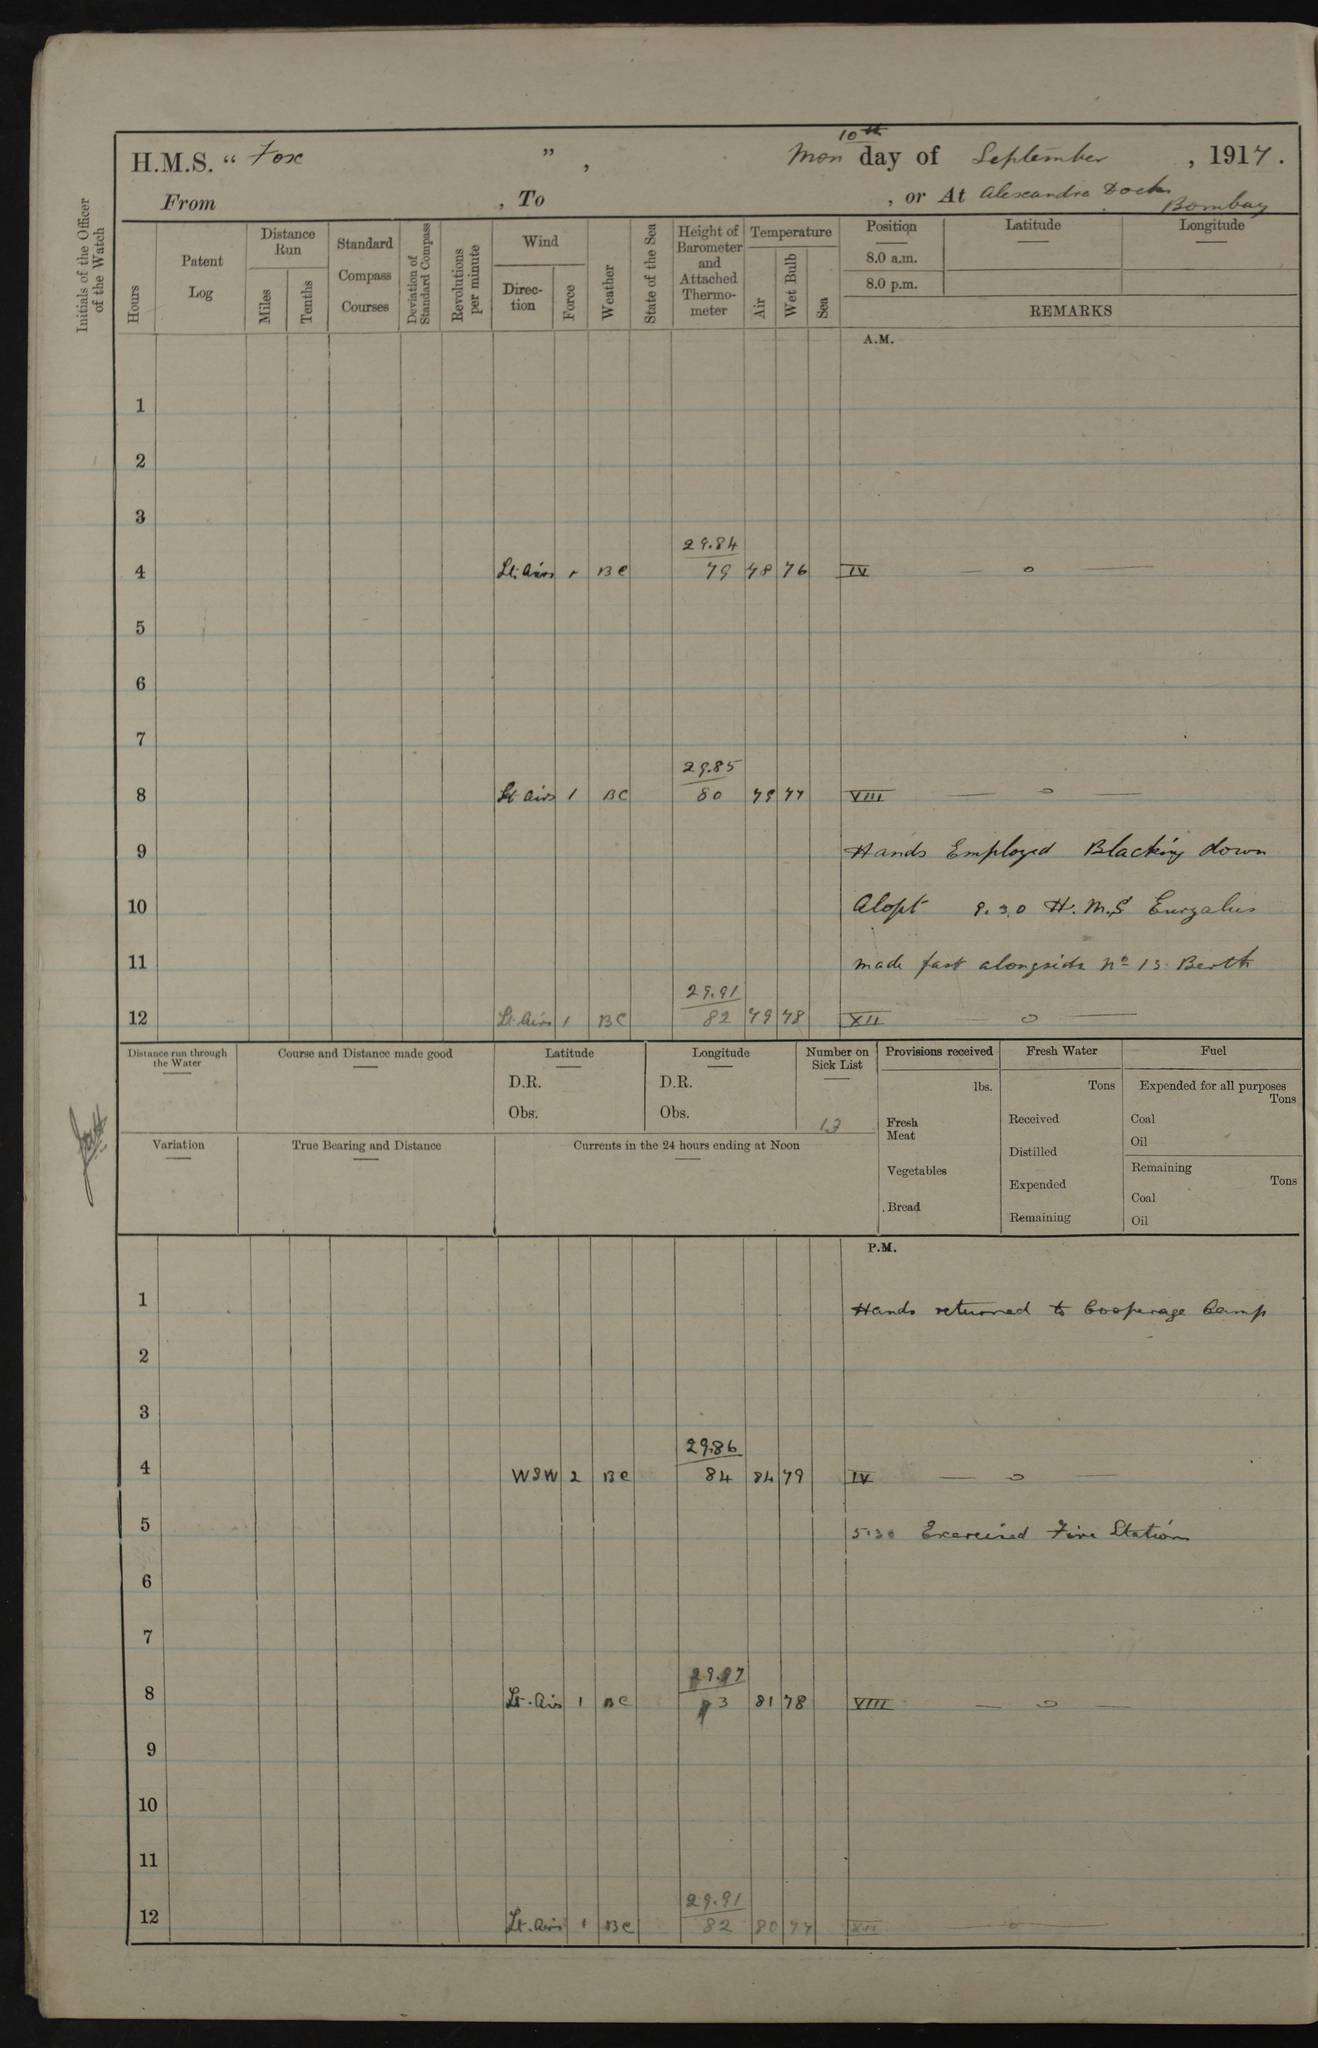 10th
H.M.S. “ Fox ” , Mon day of September , 1917 .
From , To , or At Alexandra Dock
Bombay
Initials of the Officer of the Watch
Hours
Patent Log
Distance Run
Miles
Tenths
Standard Compass Courses
Deviation of Standard Compass
Revolutions per minute
Wind
Direc-tion
Force
Weather
State of the Sea
Height of Barometer and Attached Thermo-meter
Temperature
Air
Wet Bulb
Sea
Position
Latitude
Longitude
8.0 a.m.
8.0 p.m.
REMARKS
A.M.
1
2
3
29.84
4 Lt. Airs BC 79 78 76 IV — o —
5
6
7
29.85
8 Lt airs 1 BC 80 79 77 VIII — o —
9 Hands Employed Blacking down
10 Aloft 9.30 H.M.S Euryalus
11 made fast alongside No 13 Berth
29.91
12 Lt. Airs 1 BC 82 79 78 XII — o —
Distance run through the Water
Course and Distance made good
Latitude
D.R.
Obs.
Longitude
D.R.
Obs.
Number on Sick List
13
Provisions received
lbs.
Fresh Meat
Vegetables
Bread
Fresh Water
Tons
Received
Distilled
Expended
Remaining
Fuel
Expended for all purposes
Tons
Coal
Oil
Remaining
Tons
Coal
Oil
Variation
True Bearing and Distance
Currents in the 24 hours ending at Noon
P.M.
1 Hands returned to Cooperage Camp
2
3
29.86
4 WSW 2 BC 84 84 79 IV — o —
5 5.30 Exercised Fire Station
6
7
8 Lt. Airs 1 BC 81 78 VIII — o —
9
10
11
29.91
12 Lt. Airs 1 BC 82 80 77 XII — o —